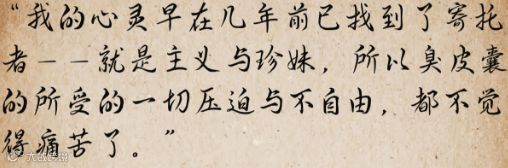 “我的心灵早在几年前已找到了寄托
者——就是主义与珍妹，所以臭皮囊
的所受的一切压迫与不自由，都不觉
得痛苦了。”